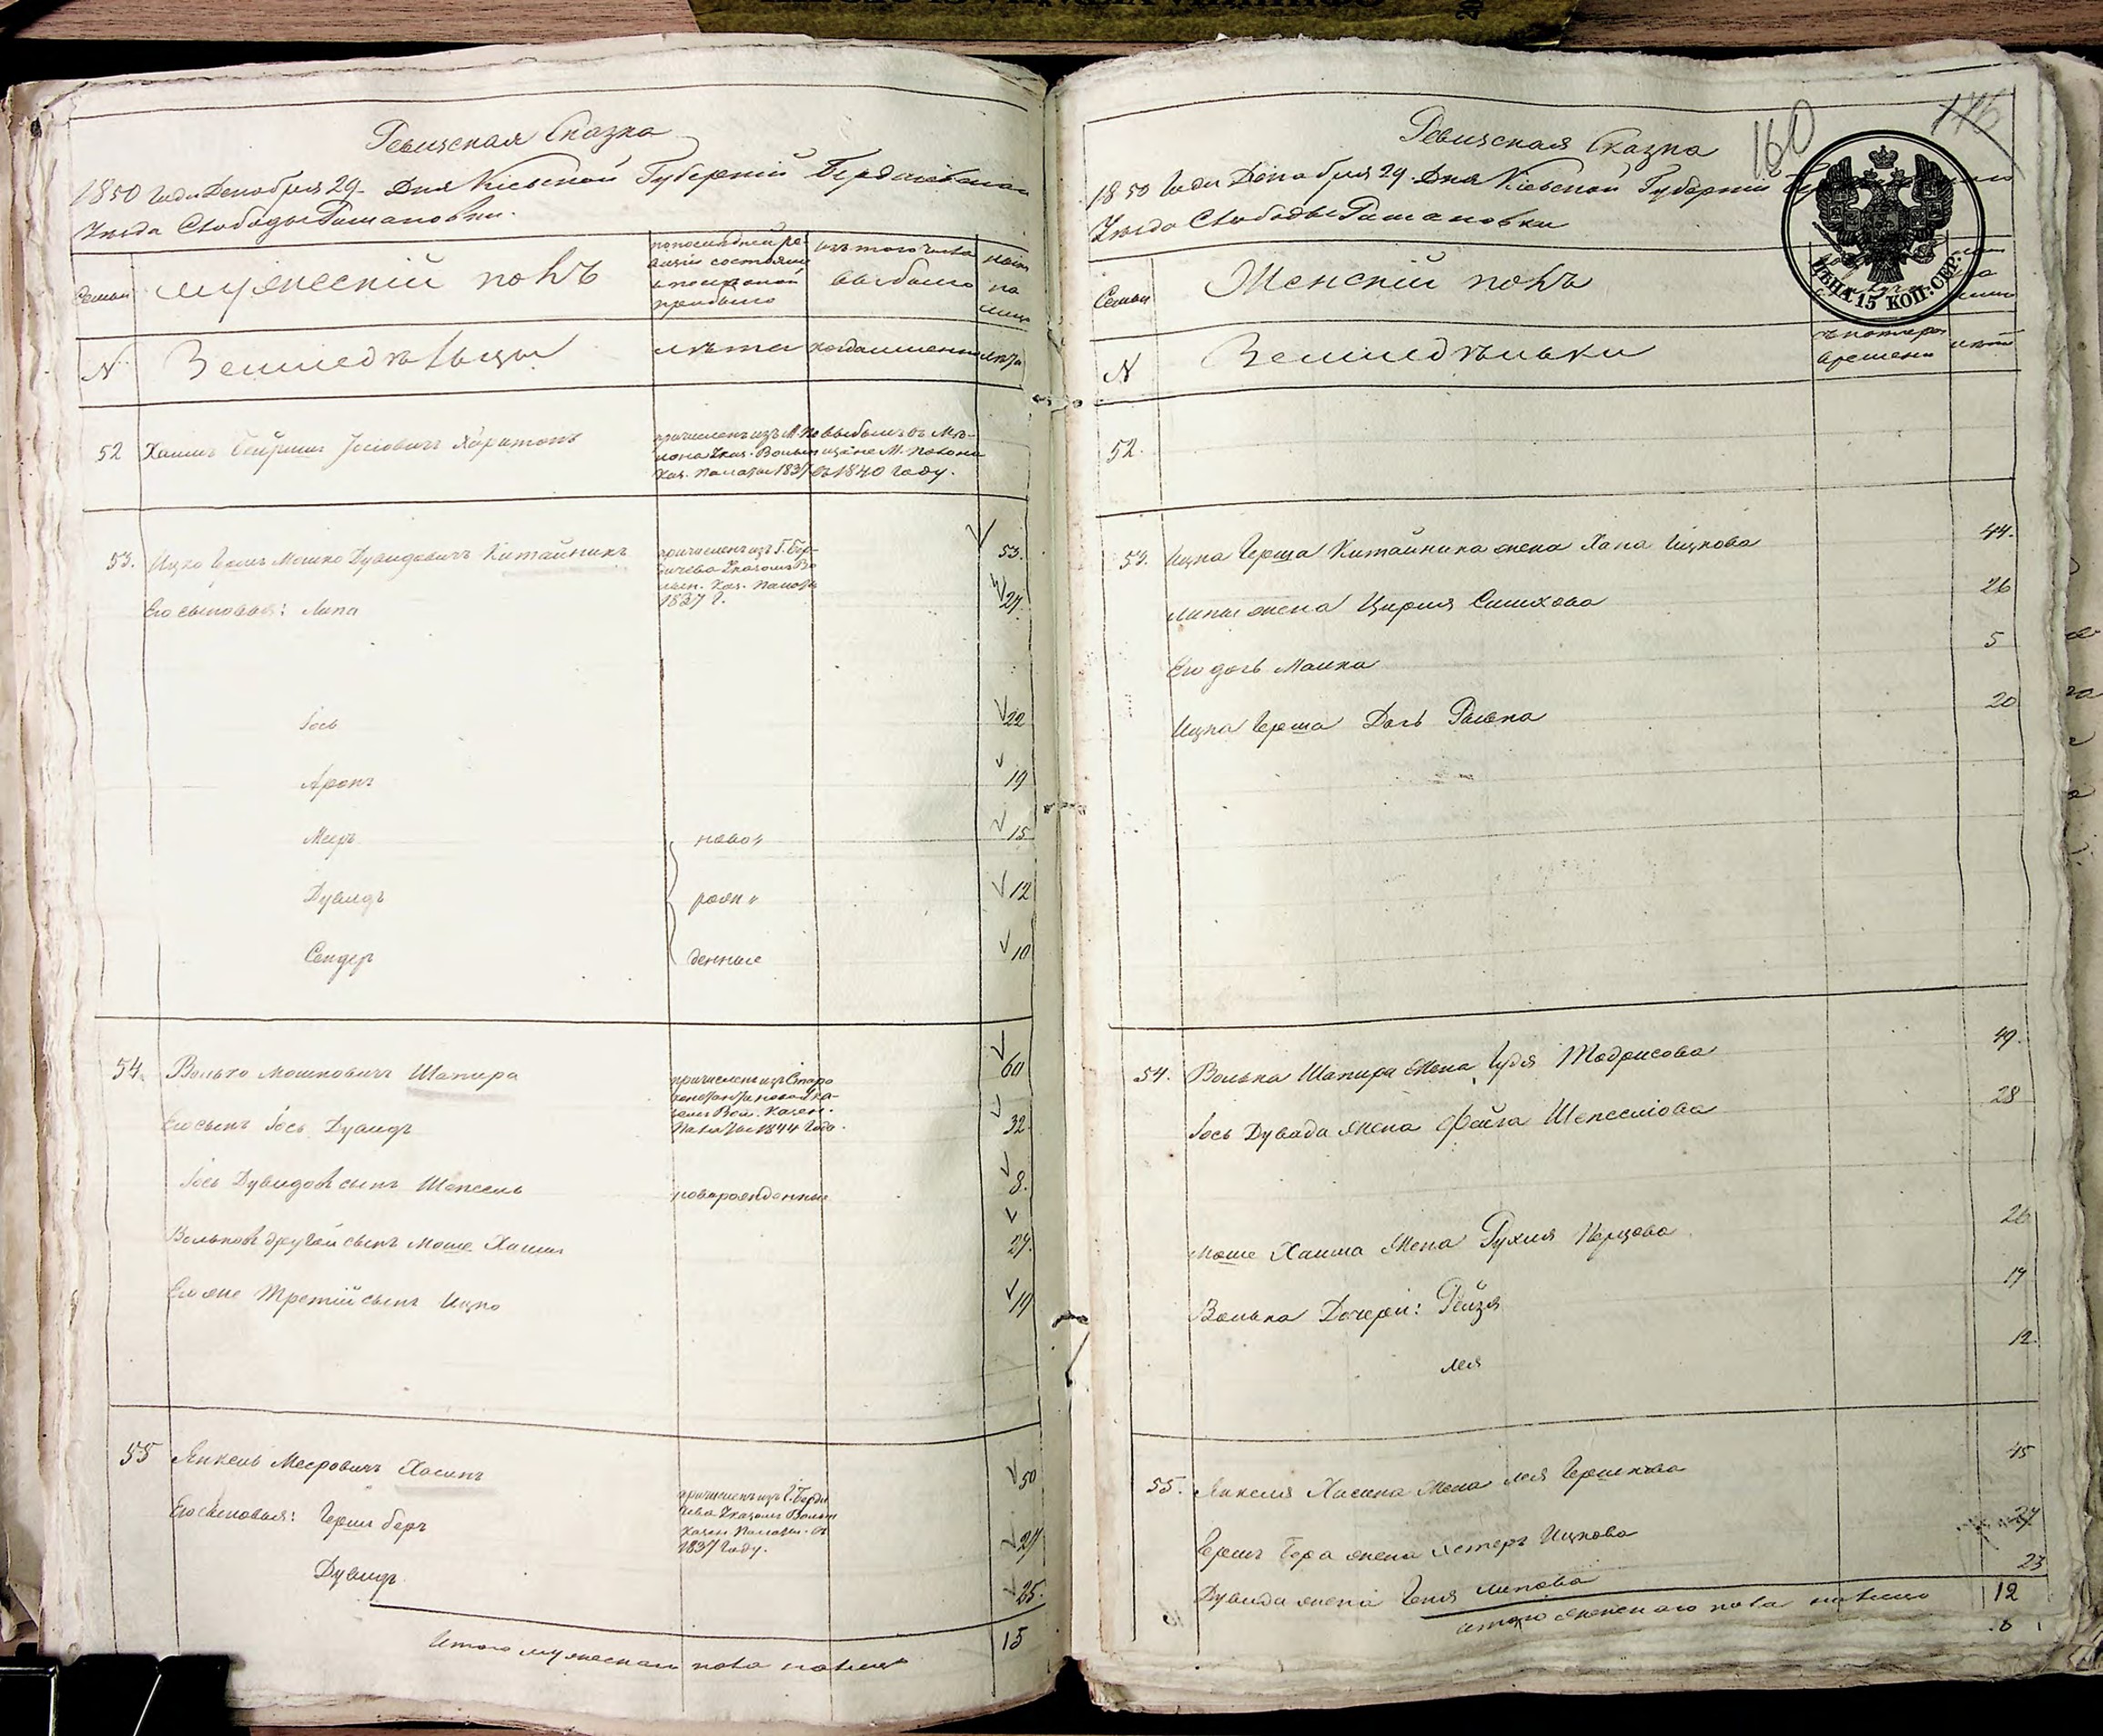 Ревизская Сказка
1850 года Декабря 29 Дня Кіевской Губерніи Бердичевскаго
Уезда Свободы Романовки.
Семьи
мужескій полъ
по последней ре-
визіи состояло
и после оной
прибыло
изъ того числа
выбыло
ныне
на
лицо
N
Земледельцы
лета
когда именно
лета
52 Хаимъ Іосіовичъ Харитонъ
причисленъ изъ М. По
лона Указ. Волын
Каз. Палаты 1837
выбылъ въ Ме-
щане М. Полона
въ 1840 году.
53. Ицко Гершъ Мошко Дувидовичъ Китайникъ
причисленъ изъ Г. Бер-
дичева Указомъ Во
лын. Каз. Палаты
1837 г.
53.
Его сыновья: Липа 27.
Іось 22
Аронъ 19
Мееръ ново 15
Дувидъ рож 12
Сендеръ денные 10
54. Волько Мошковичъ Шапира 60
причисленъ изъ Старо
константинова Ука-
зомъ Вол. Казен.
Палаты 1844 года.
Его сынъ Іось Дувидъ 32.
Іось Дувидовъ сынъ Шепсель новорожденный 8.
Вольковъ другой сынъ Моше Хаимъ 27.
Его же Третій сынъ Ицко 19
55 Янкель Мееровичъ Хасинъ 50
причисленъ изъ Г. Берди
чева Указомъ Волын
Казен Палаты въ
1837 году.
Его сыновья: Гершъ Беръ 27
Дувидъ 25.
Итого мужескаго пола налицо 15
160
146
Ревизская Сказка
1850 года Декабря 29 Дня Кіевской Губерніи
Уезда Свободы Романовки
ЦЕНА 15 КОП: СЕР:
Семьи
Женскій полъ
N
Земледельки
времени
52.
53. Ицка Герша Китайника жена Хана Ицкова 44.
Липы жена Цирля Симхова 26
Его дочь Малка 5
Ицка Герша Дочь Ривка 20
54. Волька Шапира жена Гудя Тодрисова 49.
Іось Дувида жена Фейга Шепселіова 28
Моше Хаима жена Рухля Перцова 26
Волька Дочери: Рейзя 17
Лея 12.
55. Янкеля Хасина жена Лея Гершкова 45
Гершъ Бера жена Эстеръ Ицкова 27
Дувида жена Геня Липова 23
итого женскаго пола налицо 12